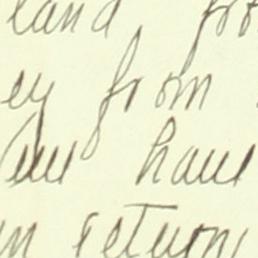 land for
ey from
have
return